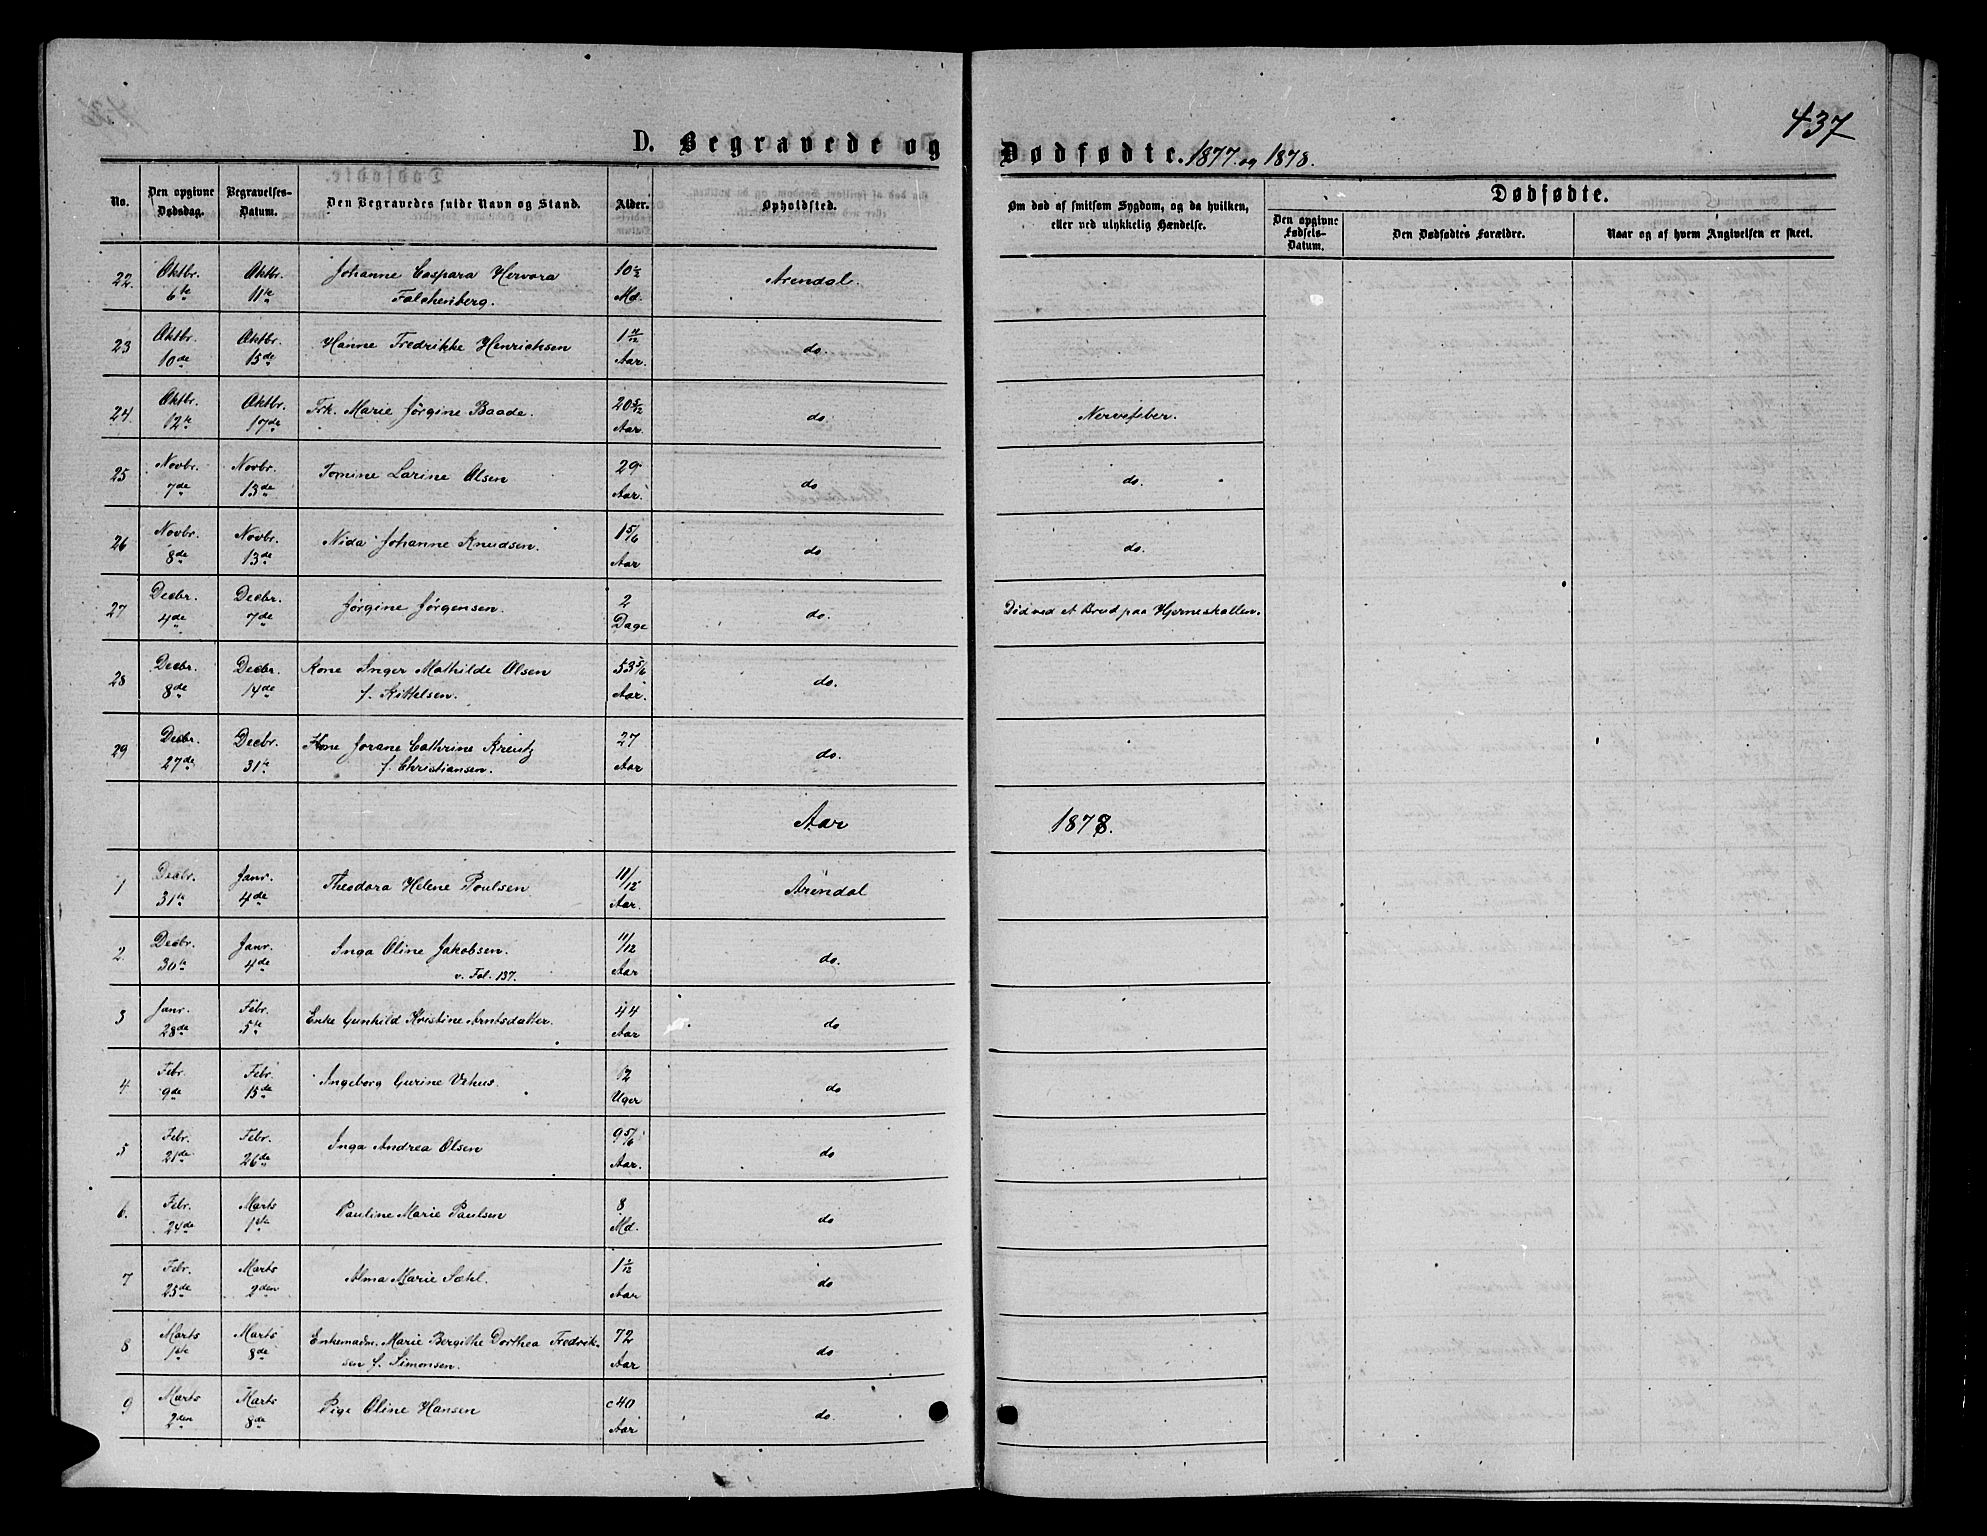 437
D. Begravede og Dødfødte. 1877 og 1878.
No.
Den opgivne Dødsdag.
Begravelses-Datum.
Den Begravedes fulde Navn og Stand.
Alder.
Opholdsted.
Om død af smitsom Sygdom, og da hvilken, eller ved ulykkelig Hændelse.
Dødfødte.
Den opgivne Fødsels-Datum.
Den Dødfødtes Forældre.
Naar og af hvem Angivelsen er skeet.
22. Oktbr. 6te Oktbr. 11te Johanne Caspara Hervora Falchenberg. 10½ Md. Arendal.
23 Oktbr. 10de Oktbr. 15de Hanne Fredrikke Henrichsen 1 11/12 Aar. do.
24. Oktbr. 12te Oktbr. 17de Frk. Marie Jørgine Baade. 20 5/12 Aar. do Nervefeber.
25 Novbr. 7de Novbr. 13de Tomine Larine Olsen 29 Aar. do do.
26 Novbr. 8de Novbr. 13de Nida Johanne Knudsen. 1 5/6 Aar do do.
27 Decbr. 4de Decbr. 7de Jørgine Jørgensen. 2 Dage do. Død ved et Brud paa Hjerneskallen.
28 Decbr. 8de Decbr. 14de Kone Inger Mathilde Olsen f. Kittelsen. 53 5/6 Aar. do.
29 Decbr. 27de Decbr. 31te Kone Jorane Cathrine Kreutz f. Christiansen. 27 Aar do.
Aar 1878.
1 Decbr. 31te Janr. 4de Theodora Helene Poulsen 11/12 Aar. Arendal
2. Decbr. 30te Janr. 4de Inga Oline Jakobsen. v. Fol. 137. 11/12 Aar do.
3 Janr. 28de Febr. 5te Enke Gunhild Kristine Arntsdatter. 44 Aar do
4. Febr. 9de Febr. 15de Ingeborg Gurine Vehus. 12 Uger do
5 Febr. 21de Febr. 26de Inga Andrea Olsen 9 5/6 Aar. do
6. Febr. 24de Marts 1ste Pauline Marie Paulsen 8 Md. do
7 Febr. 25de Marts 2den Alma Marie Sæhl. 1 1/12 Aar do
8 Marts 1ste Marts 8de Enkemadm. Marie Bergithe Dorthea Fredrik-
sen f. Simonsen. 72 Aar do
9 Marts 2den Marts 8de Pige Oline Hansen c 40 Aar do.